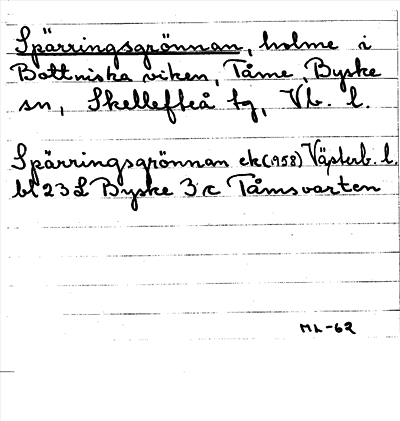 Spärringsgrönnan, holme i
Bottniska viken, Tåme, Byske
sn, Skellefteå tg, Vb. l.
Spärringsgrönnan ek(1958) Västerb. l.
bl 23 L Byske 3 c Tåmsvarten
ML-62